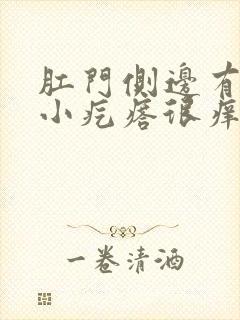 肛門側邊有
小疙瘩很痒
一卷清酒